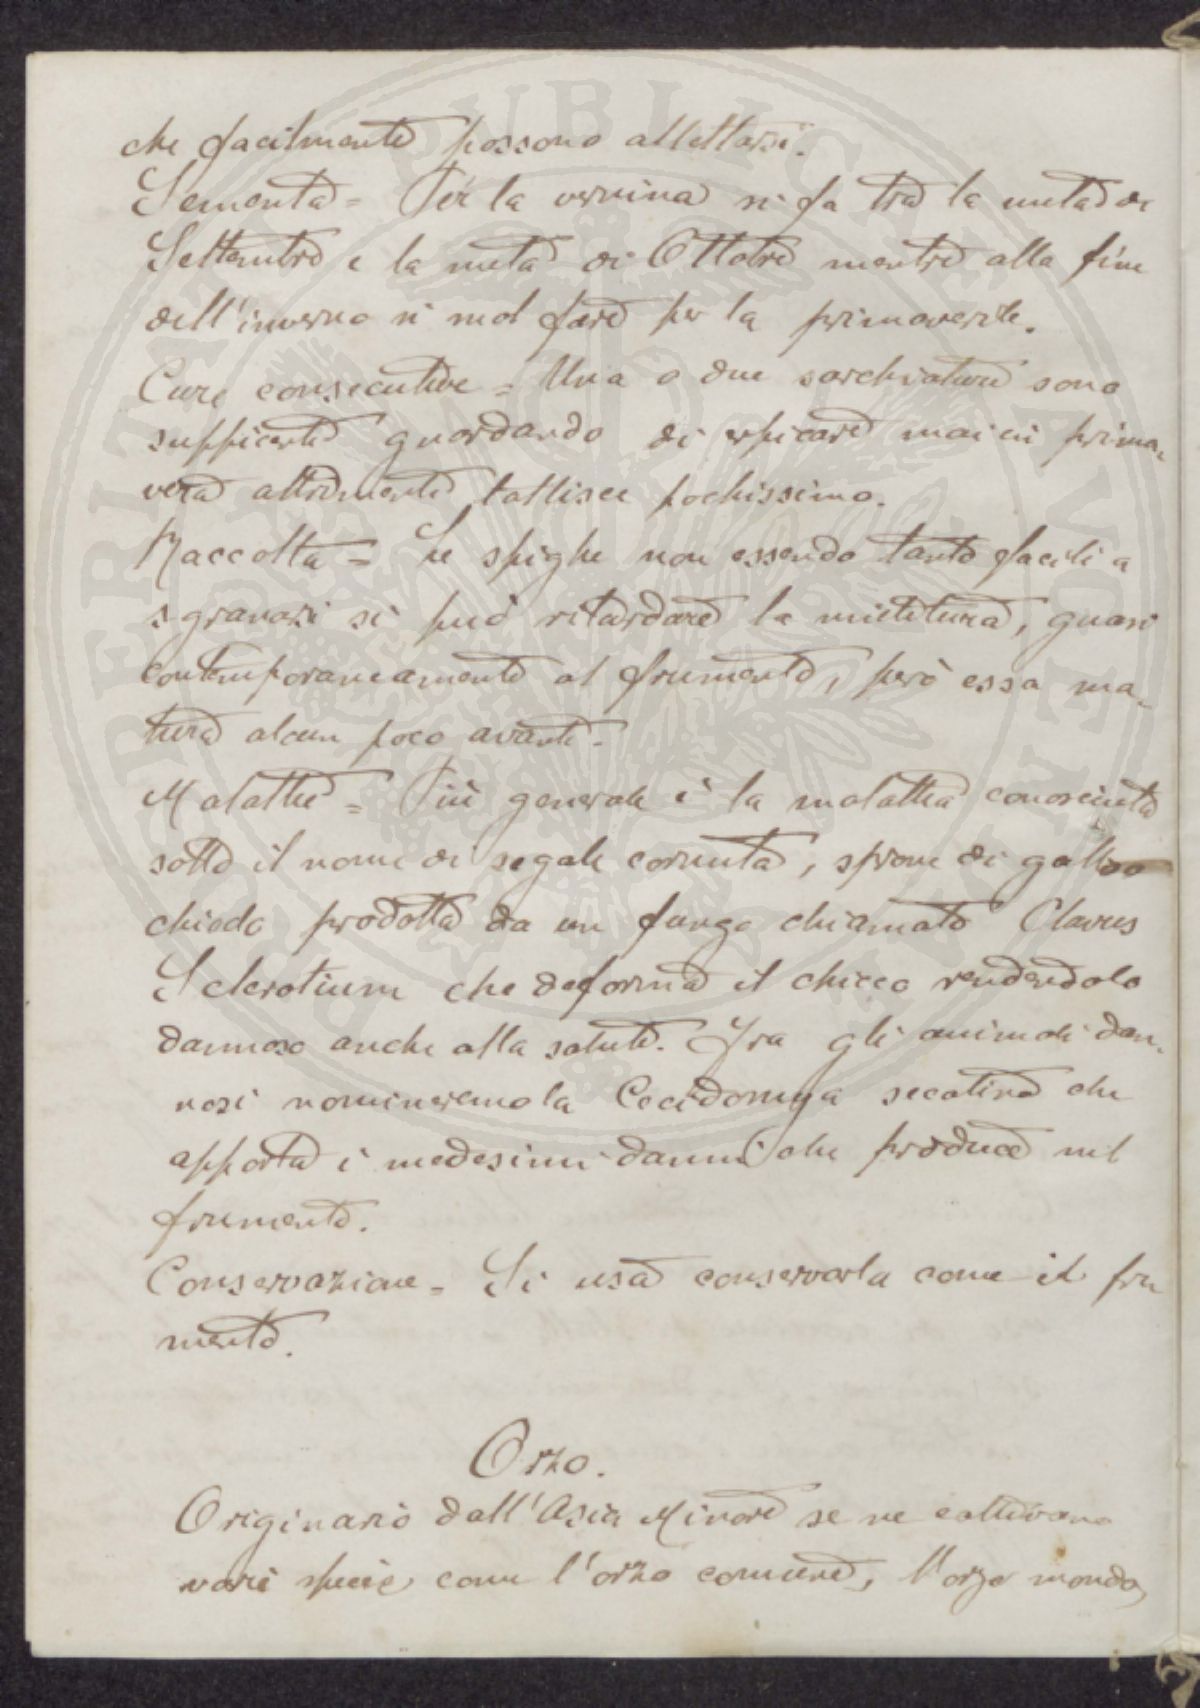 che facilmente possono allettarsi.
Sementa = Per la vernina si fa tra la metà di
Settembre e la metà di Ottobre mentre alla fine
dell'inverno si suol fare per la primaverile.
Cure consecutive = Una o due sarchiature sono
sufficenti guardando di erpicare mai in prima-
vera altrimenti tallisce pochissimo.
Raccolta = Le spighe non essendo tanto facili a
sgranarsi si può ritardare la mietitura, quasi
contemporaneamente al frumento, però essa ma-
tura alcun poco avanti.
Malattie = Più generale è la malattia conosciuta
sotto il nome di segale cornuta, sprone di gallo o
chiodo prodotta da un fungo chiamato Clavus
Sclerotium che deforma il chicco rendendolo
dannoso anche alla salute. Fra gli animali dan-
nosi nomineremo la Cecidomya secalina che
apporta i medesimi danni che produce nel
frumento.
Conservazione = Si usa conservarla come il fru
mento.
Orzo.
Originario dall'Asia Minore se ne coltivano
varie specie come l'orzo comune, l'orzo mondo,
PUBLICE